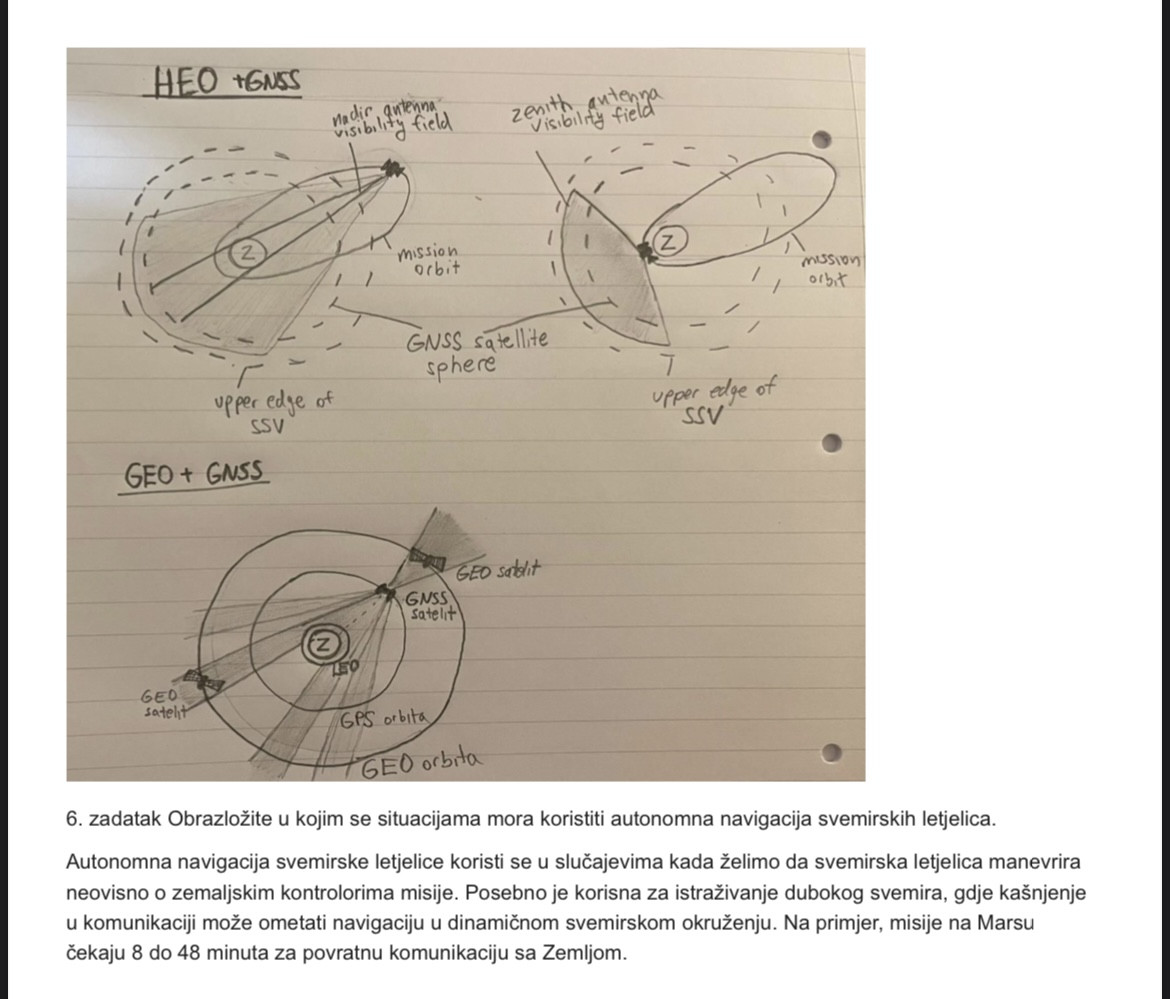 HEO +GNSS
nadir antenna
visibility field
zenith antenna
visibility field
Z
Z
mission
orbit
mission
orbit
GNSS satellite
sphere
upper edge of
SSV
upper edge of
SSV
GEO + GNSS
GEO satelit
GNSS
satelit
Z
LEO
GEO
satelit
GPS orbita
GEO orbita
6. zadatak Obrazložite u kojim se situacijama mora koristiti autonomna navigacija svemirskih letjelica.
Autonomna navigacija svemirske letjelice koristi se u slučajevima kada želimo da svemirska letjelica manevrira
neovisno o zemaljskim kontrolorima misije. Posebno je korisna za istraživanje dubokog svemira, gdje kašnjenje
u komunikaciji može ometati navigaciju u dinamičnom svemirskom okruženju. Na primjer, misije na Marsu
čekaju 8 do 48 minuta za povratnu komunikaciju sa Zemljom.